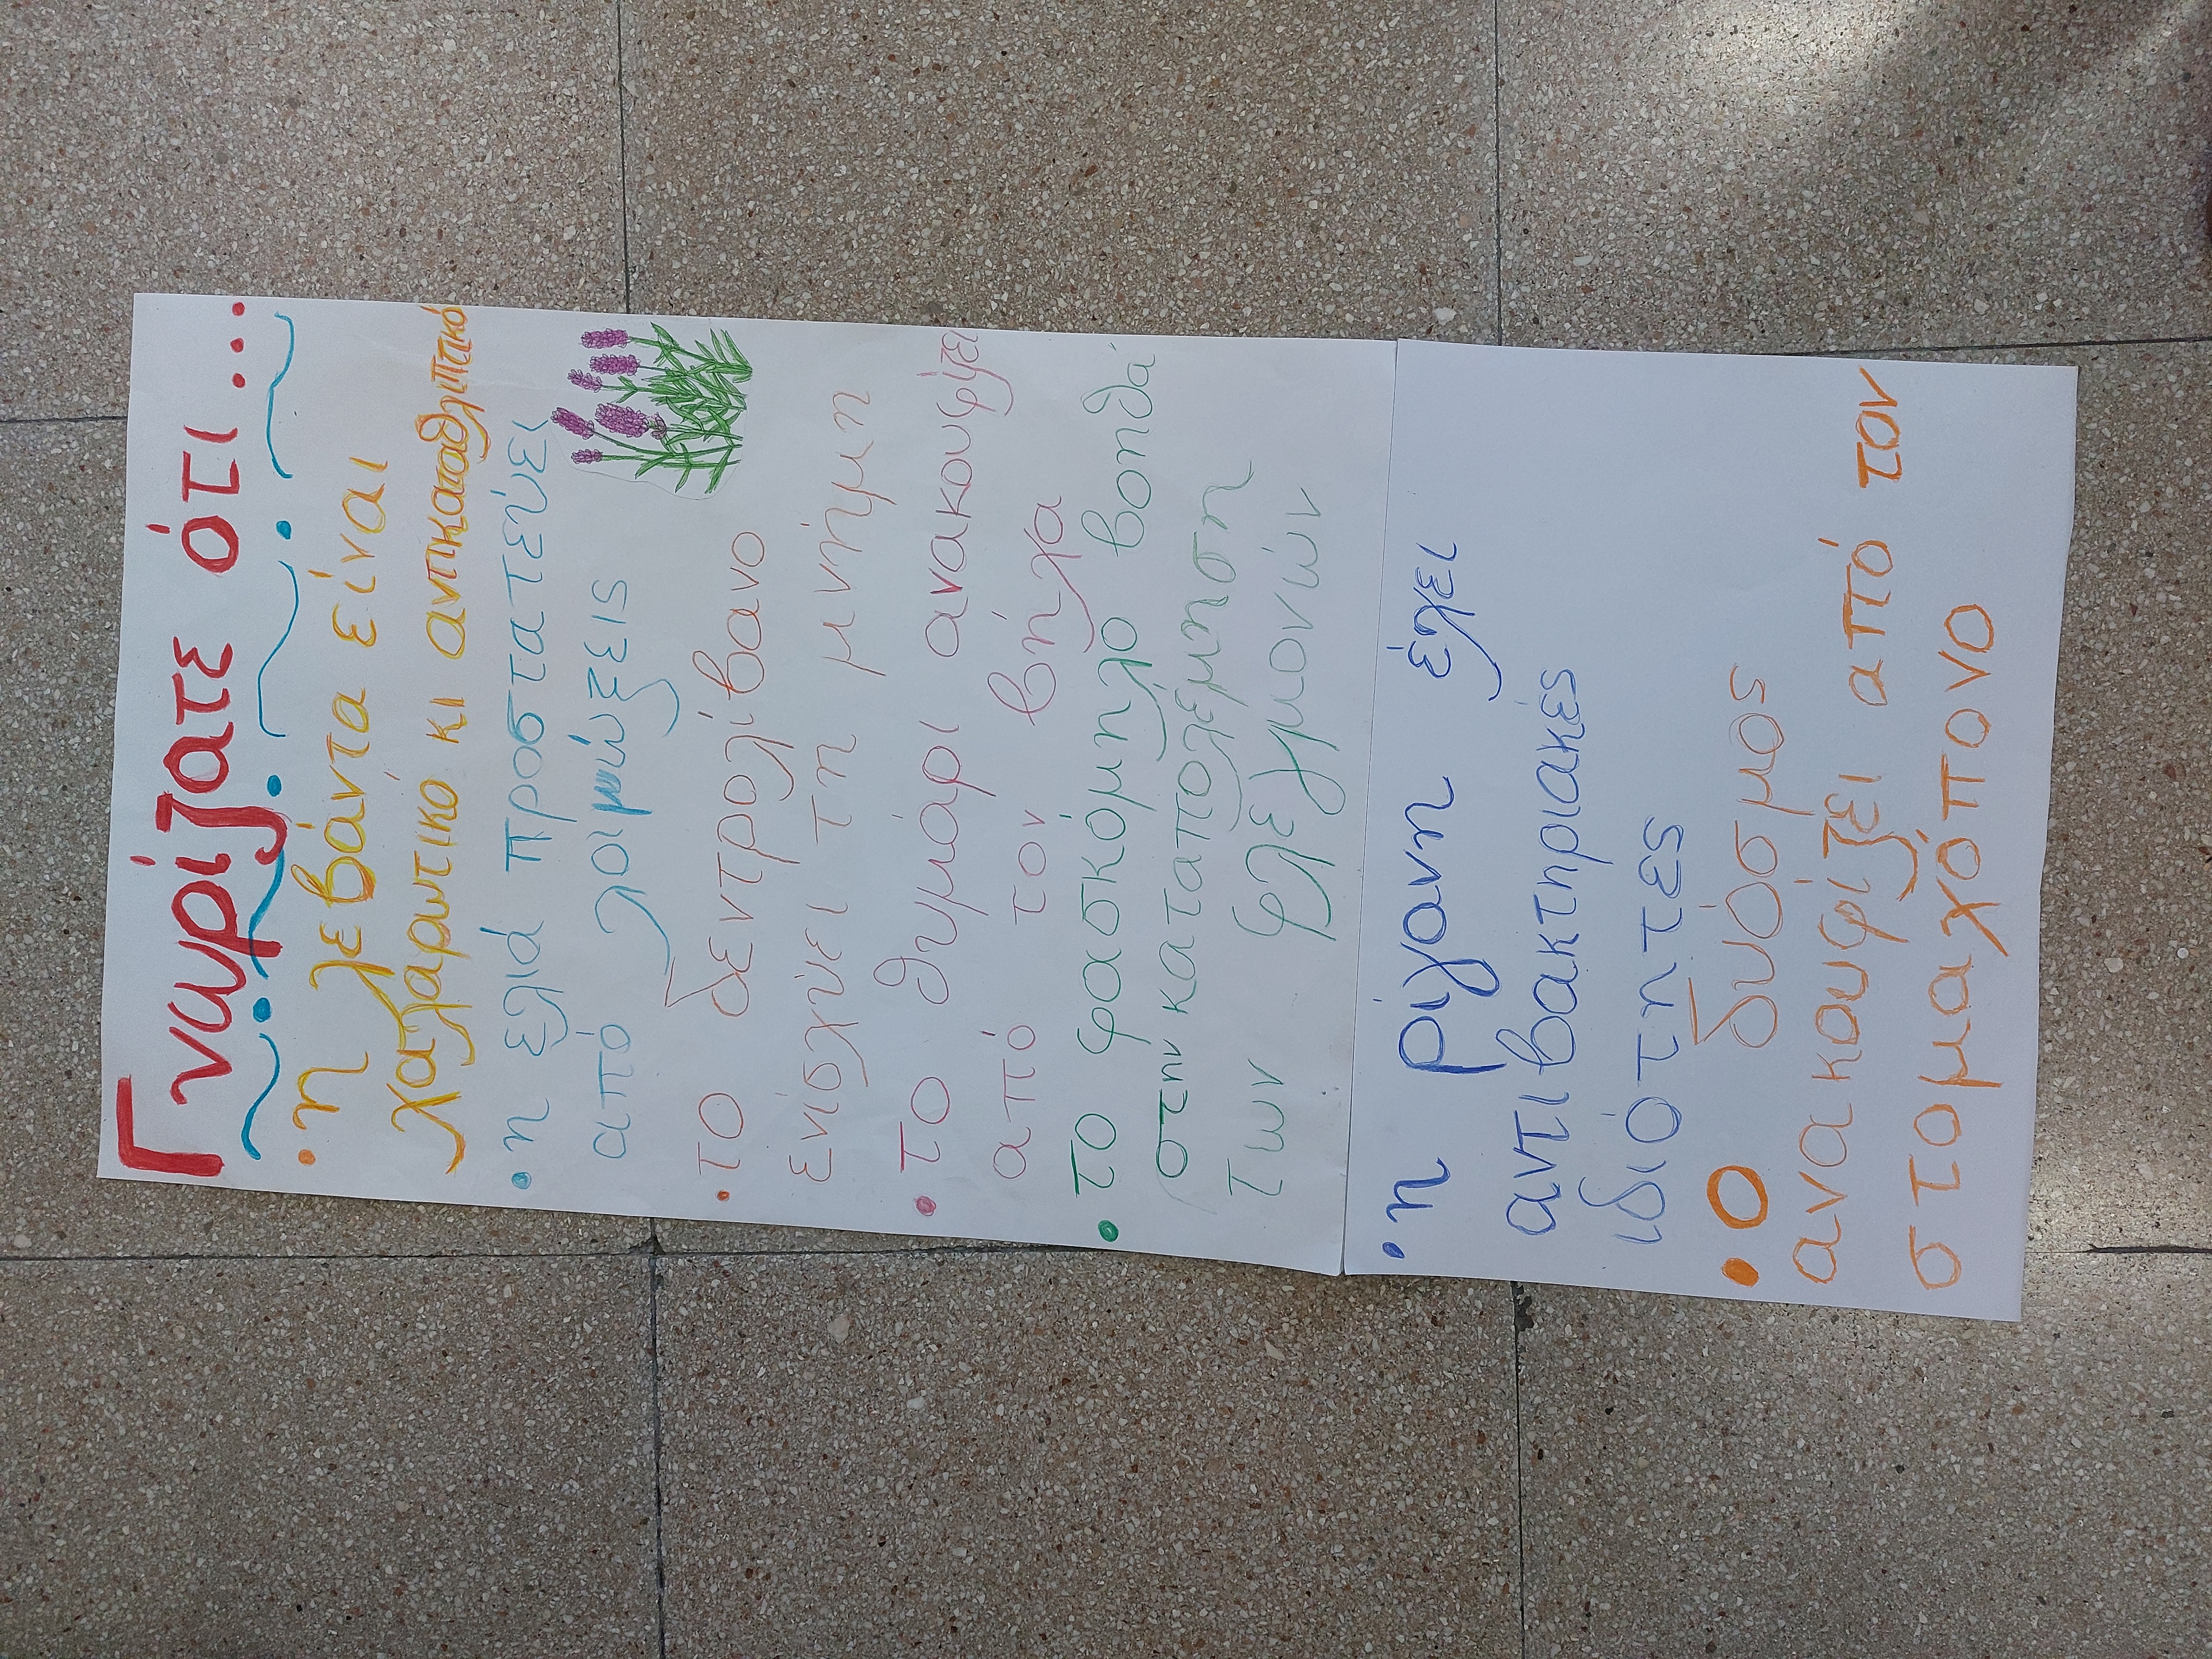 Γνωρίζατε ότι...
• η λεβάντα είναι
χαλαρωτικό κι αντικαταθλιπτικό
• η ελιά προστατεύει
από λοιμώξεις
• το δεντρολίβανο
ενισχύει τη μνήμη
• το θυμάρι ανακουφίζει
από τον βήχα
• το φασκόμηλο βοηθά
στην καταπολέμηση
των φλεγμονών
• η ρίγανη έχει
αντιβακτηριακές
ιδιότητες
• Ο δυόσμος
ανακουφίζει από τον
στομαχόπονο